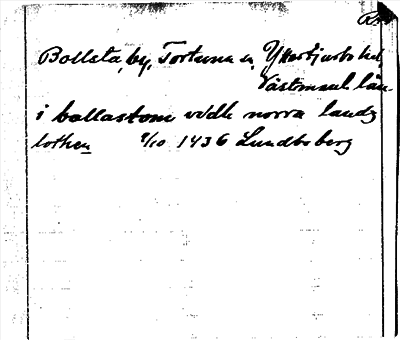 Bollsta, by, Tortuna sn, Yttertjurbo hd,
Västmanl. län.
i ballastom widh norra landz
lothen 9/10 1436 Lundboberg